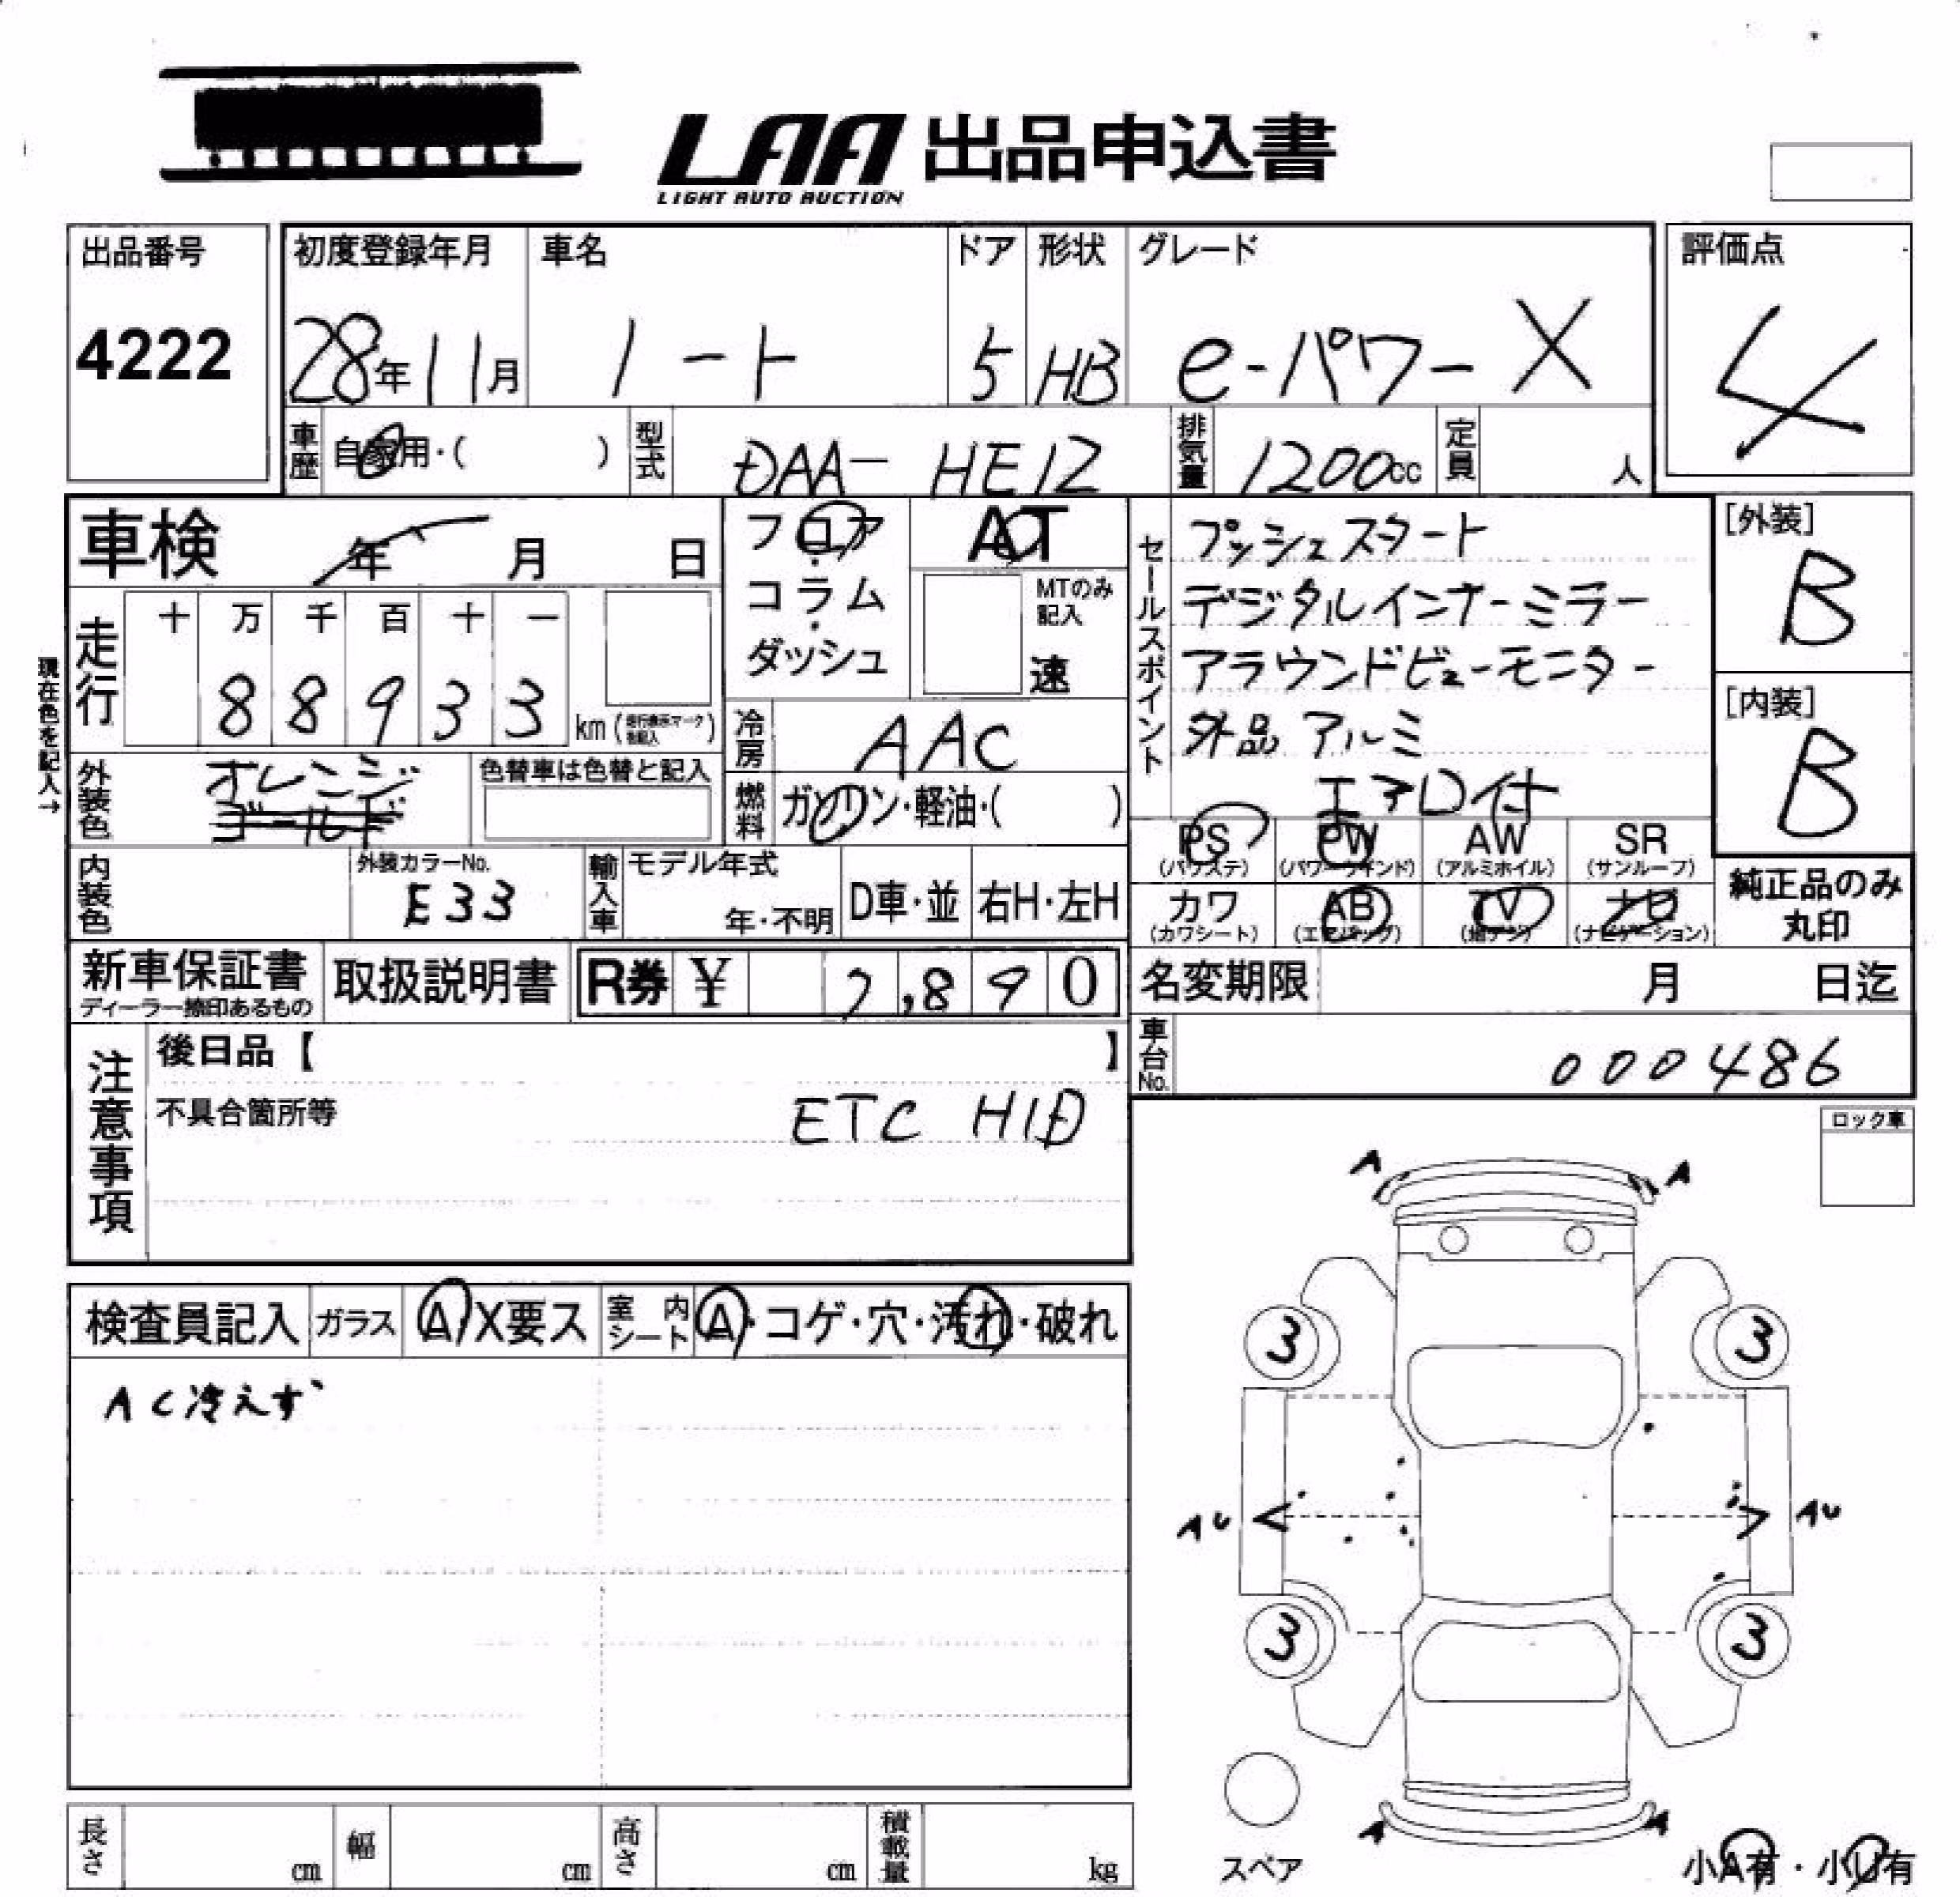 LAA 出品申込書
LIGHT AUTO AUCTION
出品番号
4222
初度登録年月
28年11月
車名
ノート
ドア
5
形状
HB
グレード
e-パワー X
評価点
4
車歴
自家用・( )
型式
DAA- HE12
排気量
1200cc
定員
人
車検
年 月 日
フロア
・
コラム
・
ダッシュ
AT
MTのみ
記入
速
セールスポイント
プッシュスタート
デジタルインナーミラー
アラウンドビューモニター
外品 アルミ
エアロ付
[外装]
B
[内装]
B
現在色を記入→
走行
十 万 千 百 十 一
8 8 9 3 3
km
冷房
AAC
外装色
オレンジ
ゴールド
色替車は色替と記入
燃料
ガソリン・軽油・( )
PS
(パワステ)
PW
(パワーウインド)
AW
(アルミホイル)
SR
(サンルーフ)
カワ
(カワシート)
AB
(エアバック)
TV
(地デジ)
ナビ
(ナビゲーション)
純正品のみ
丸印
内装色
外装カラーNo.
E33
輸入車
モデル年式
年・不明
D車・並
右H・左H
新車保証書
ディーラー捺印あるもの
取扱説明書
R券 ¥ 7,890
名変期限
月 日迄
車台No.
000486
注意事項
後日品【 】
不具合箇所等
ETC HID
ロック車
検査員記入
ガラス
A・X要ス
室内
シート
A・コゲ・穴・汚れ・破れ
AC冷えず
A A
3 3
AU AU
3 3
A A
スペア
小A有・小U有
長さ
cm
幅
cm
高さ
cm
積載量
kg